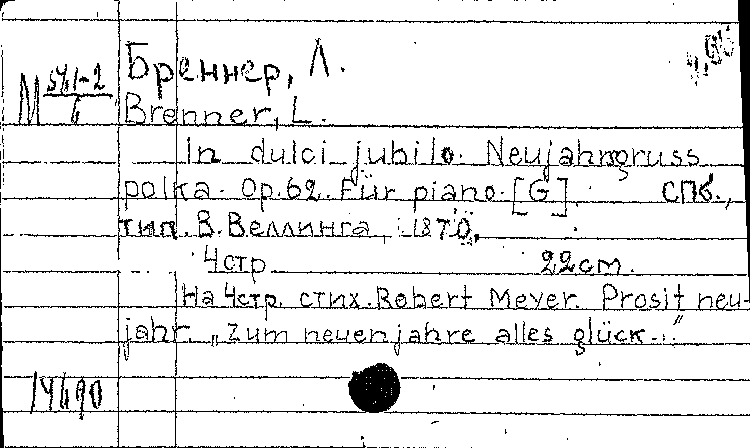 Бреннер, Л.
М 561-2/6
Brenner, L.
In dulci jubilo. Neujahrsgruss
polka. Op.62. Für piano. [G]. СПб.,
тип. В. Веллинга, 1870.
4стр 22см.
На 4стр. стих. Robert Meyer. Prosit neu-
jahr. „Zum neuenjahre alles glück..."
14690